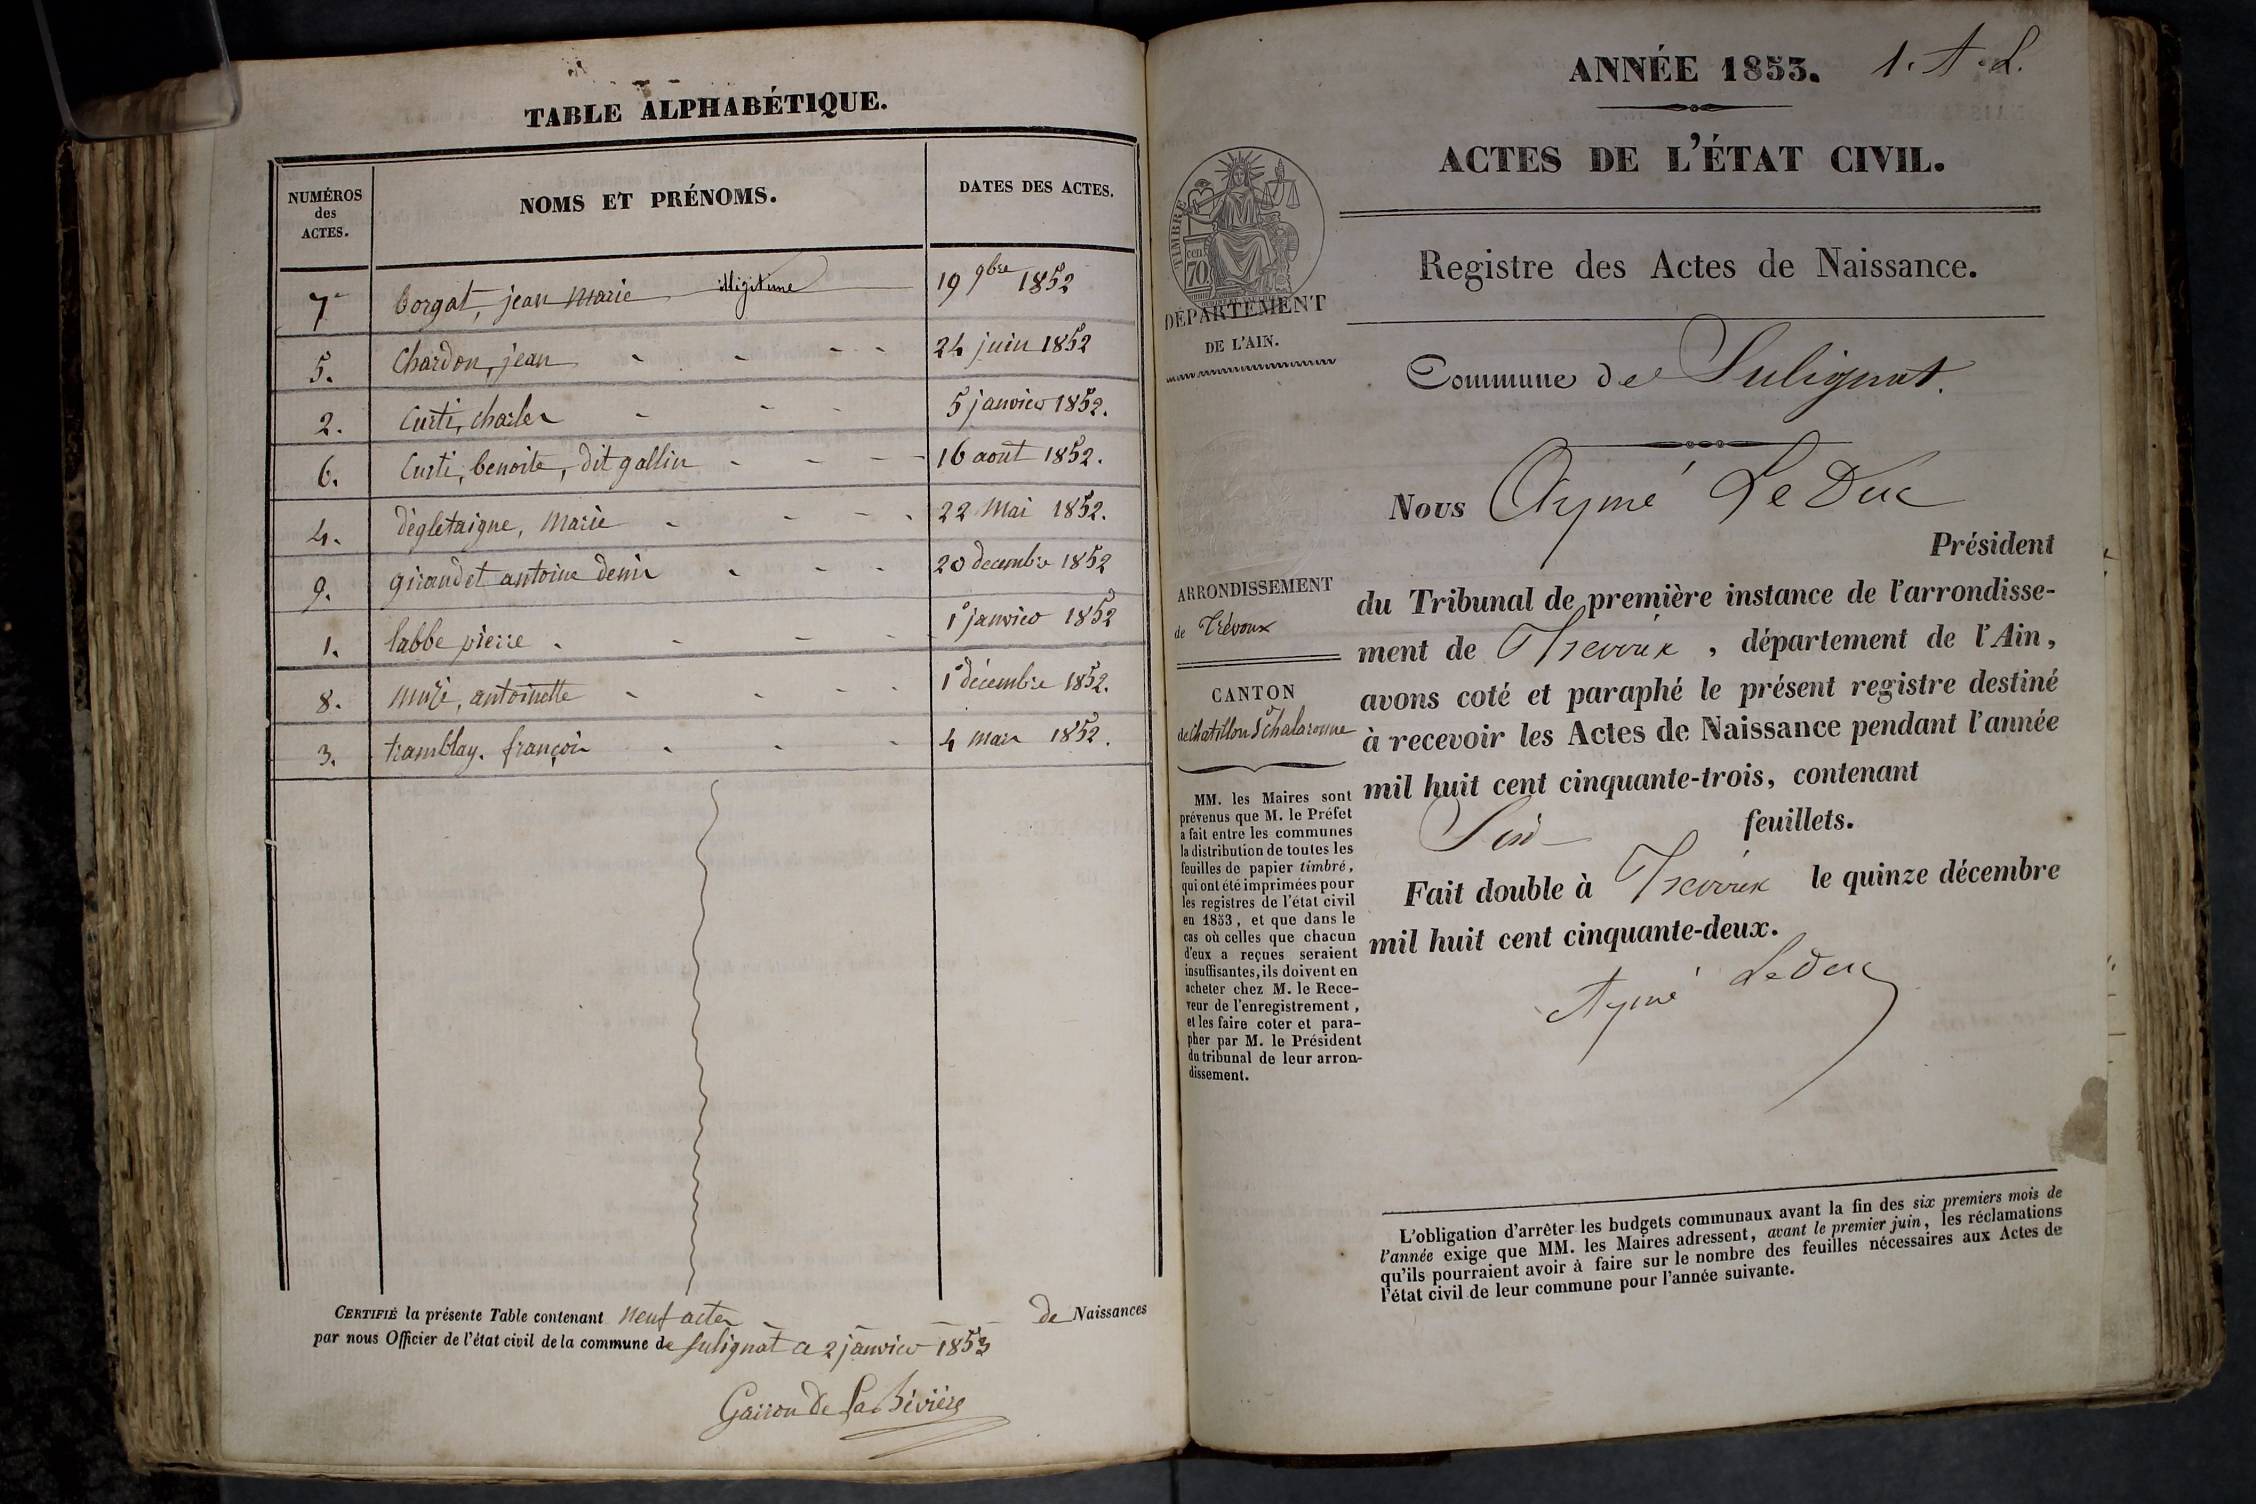 TABLE ALPHABÉTIQUE.
NUMÉROS des ACTES. NOMS ET PRÉNOMS. DATES DES ACTES.
7 Borgat, jean Marie illigitime 19 9bre 1852
5. Chardon, jean 24 juin 1852
2. Curti, charles 5 janvier 1852.
6. Curti, benoite, dit gallin 16 aout 1852.
4. dégletaigne, Marie 22 Mai 1852.
9. giraudet antoine denis 20 decembre 1852
1. labbe pierre 1° janvier 1852
8. antoinette 1° décembre 1852.
3. tramblay. françois 4 mars 1852.
CERTIFIÉ la présente Table contenant neuf actes de Naissances
par nous Officier de l'état civil de la commune de Sulignat ce 2 janvier 1853
ANNÉE 1853. 1. A. L.
ACTES DE L'ÉTAT CIVIL.
Registre des Actes de Naissance.
TIMBRE
70 cen
DÉPARTEMENT
DE L'AIN.
Commune de Sulignat.
ARRONDISSEMENT
de Trévoux
CANTON
de Chatillon s Chalaronne
MM. les Maires sont
prévenus que M. le Préfet
a fait entre les communes
la distribution de toutes les
feuilles de papier timbré,
qui ont été imprimées pour
les registres de l'état civil
en 1853, et que dans le
cas où celles que chacun
d'eux a reçues seraient
insuffisantes, ils doivent en
acheter chez M. le Rece-
veur de l'enregistrement,
et les faire coter et para-
pher par M. le Président
du tribunal de leur arron-
dissement.
Nous Aymé Le Duc
Président
du Tribunal de première instance de l'arrondisse-
ment de Trévoux, département de l'Ain,
avons coté et paraphé le présent registre destiné
à recevoir les Actes de Naissance pendant l'année
mil huit cent cinquante-trois, contenant
Six feuillets.
Fait double à Trévoux le quinze décembre
mil huit cent cinquante-deux.
Aymé Le Duc
L'obligation d'arrêter les budgets communaux avant la fin des six premiers mois de
l'année exige que MM. les Maires adressent, avant le premier juin, les réclamations
qu'ils pourraient avoir à faire sur le nombre des feuilles nécessaires aux Actes de
l'état civil de leur commune pour l'année suivante.